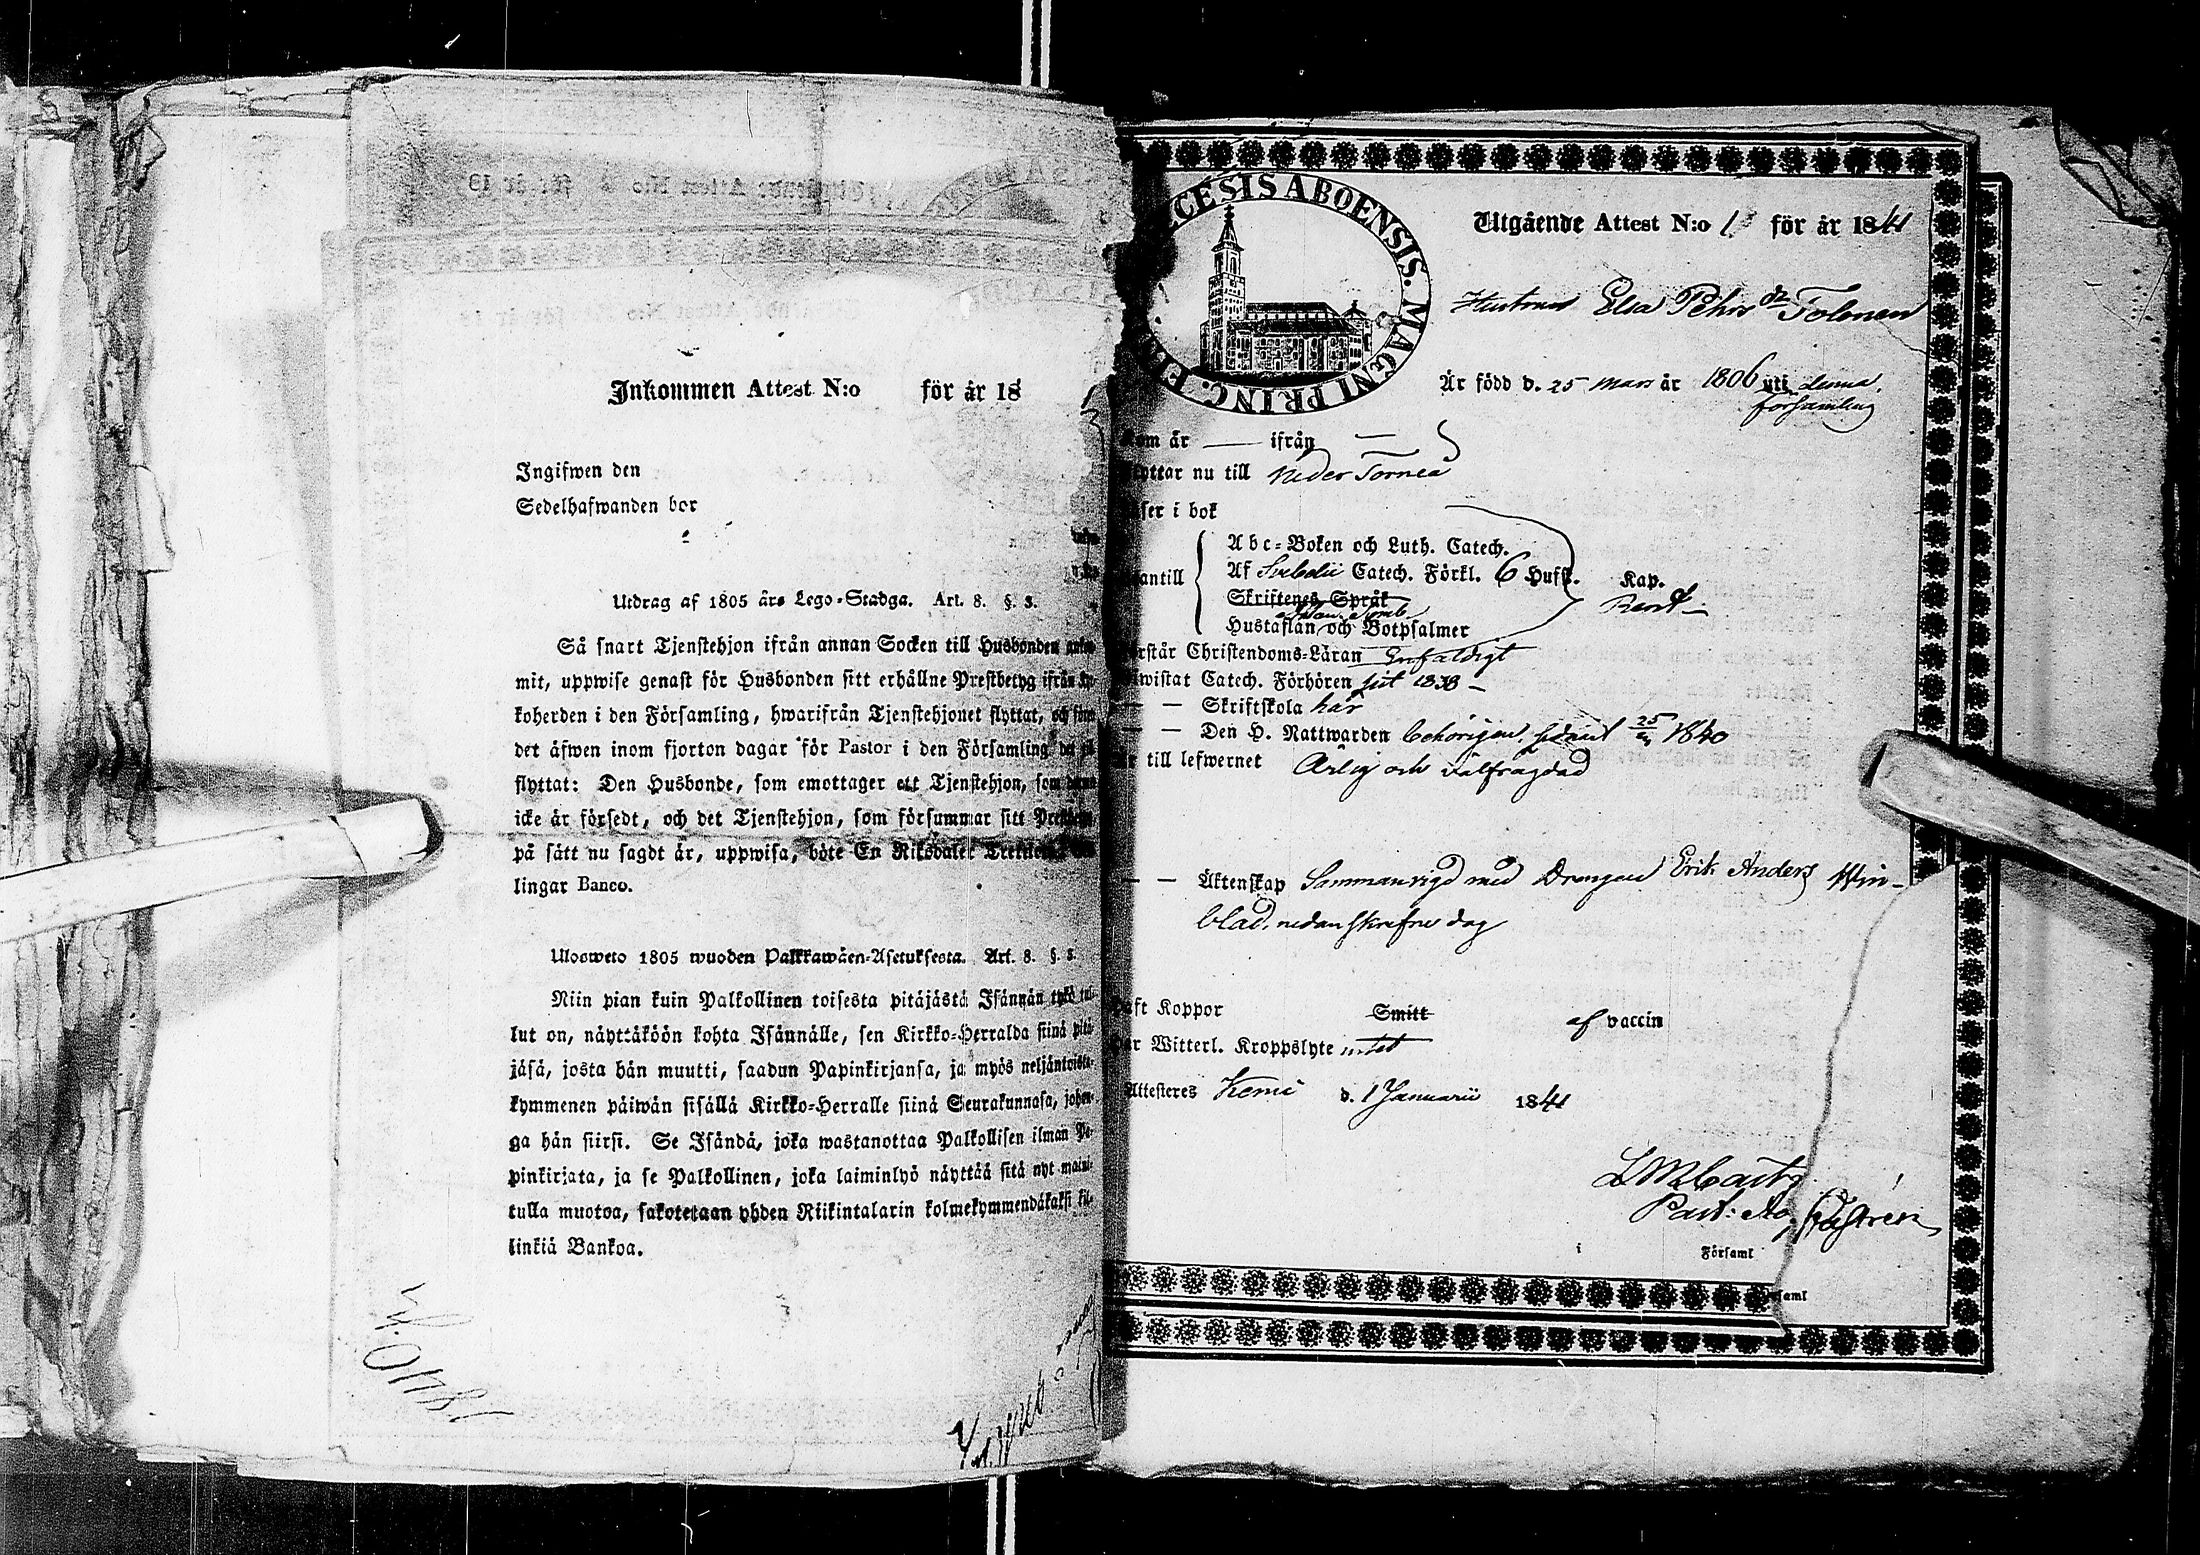 Inkommen Attest N:o för år 18
Ingifwen den
Sedelhafwanden bor
Utdrag af 1805 års Lego-Stadga. Art. 8. §. 3.
Så snart Tjenstehjon ifrån annan Socken till Husbonden
mit, uppwise genast för Husbonden sitt erhållne Prestbetyg ifrån
koherden i den Församling, hwarifrån Tjenstehjonet flyttat, och
det äfwen inom fjorton dagar för Pastor i den Församling
flyttat: Den Husbonde, som emottager ett Tjenstehjon, som
icke är försedt, och det Tjenstehjon, som försummar sitt
på sätt nu sagdt är, uppwisa, böte En Riksdaler
lingar Banco.
Ulosweto 1805 wuoden Palkkawäen-Asetuksesta. Art. 8. §. 3.
Niin pian kuin Palkollinen toisesta pitäjästä Isännän tykö tul-
lut on, näyttäköön kohta Isännälle, sen Kirkko-Herralda siinä pitä-
jäsä, josta hän muutti, saadun Papinkirjansa, ja myös neljäntoista-
kymmenen päiwän sisällä Kirkko-Herralle siinä Seurakunnasa, johon-
ga hän siirsi. Se Isändä, joka wastanottaa Palkollisen ilman Pa-
pinkirjata, ja se Palkollinen, joka laiminlyö näyttää sitä nyt maini-
tulla muotoa, sakotetaan yhden Riikintalarin kolmekymmendäkaksi kil-
linkiä Bankoa.
CESIS ABOENSIS. MAGNI PRINC.
Utgående Attest N:o 1 för år 1841
Hustrun Elsa Pehrs dr Tolonen
Är född d. 25 Mars år 1806 uti denna
församling
Kom år — ifrån —
Flyttar nu till Neder Torneå
Läser i bok
Utantill
Abc-Boken och Luth. Catech.
Af Svebelii Catech. Förkl. 6 Hufst. Kap.
Skriftenes Språk
Hustaflan och Botpsalmer
Förstår Christendoms-Läran Enfaldigt
Bewistat Catech. Förhören sist 1838 —
— — Skriftskola här
— — Den H. Nattwarden behörigen, sednast 1840
Är till lefwernet Ärlig och välfrägdad
— — Äktenskap Sammanvigd med Drengen Erik Anders Win-
blad, nedanskrefne dag
Haft Koppor Smitt af vaccin
Har Witterl. Kroppslyte intet
Attesteres Kemi d. 1 Januarii 1841
Castrén
i Församl
saml